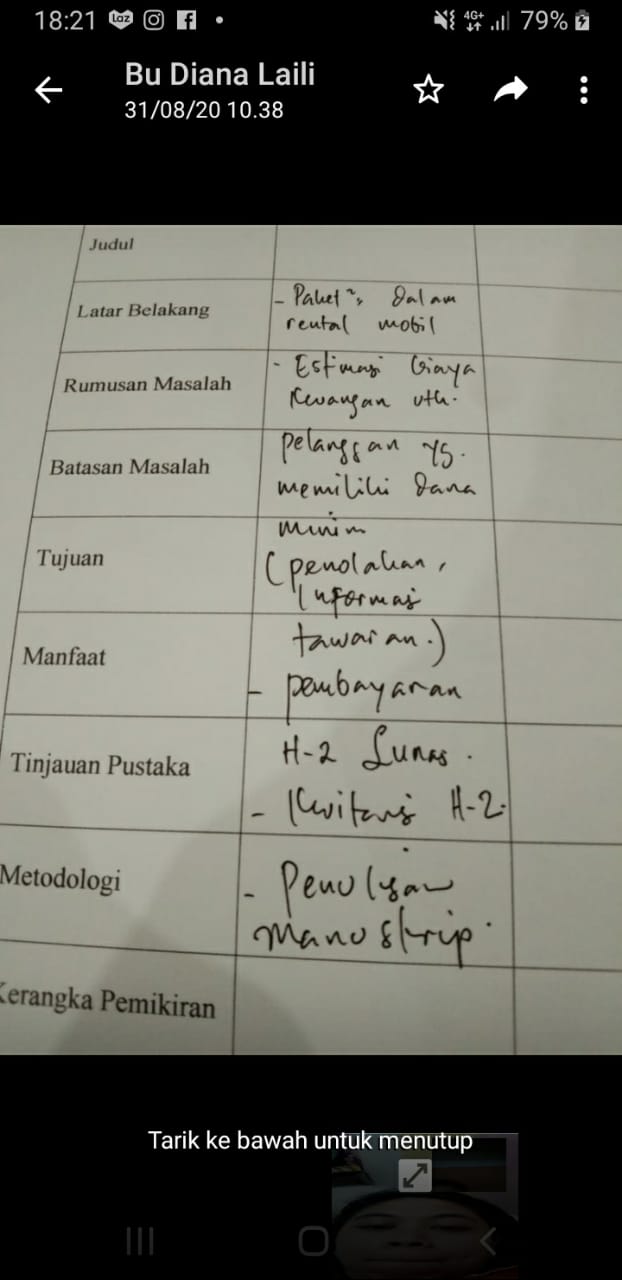 18:21 Laz 4G+ 79%
Bu Diana Laili
31/08/20 10.38
Judul
Latar Belakang
- Paket², dalam
rental mobil
Rumusan Masalah
- Estimasi biaya
Keuangan utk.
Batasan Masalah
pelanggan yg.
memiliki dana
Tujuan
minim
(penolakan,
informasi
Manfaat
tawaran.)
- pembayaran
Tinjauan Pustaka
H-2 Lunas.
- Kwitansi H-2.
Metodologi
- Penulisan
manuskrip.
Kerangka Pemikiran
Tarik ke bawah untuk menutup